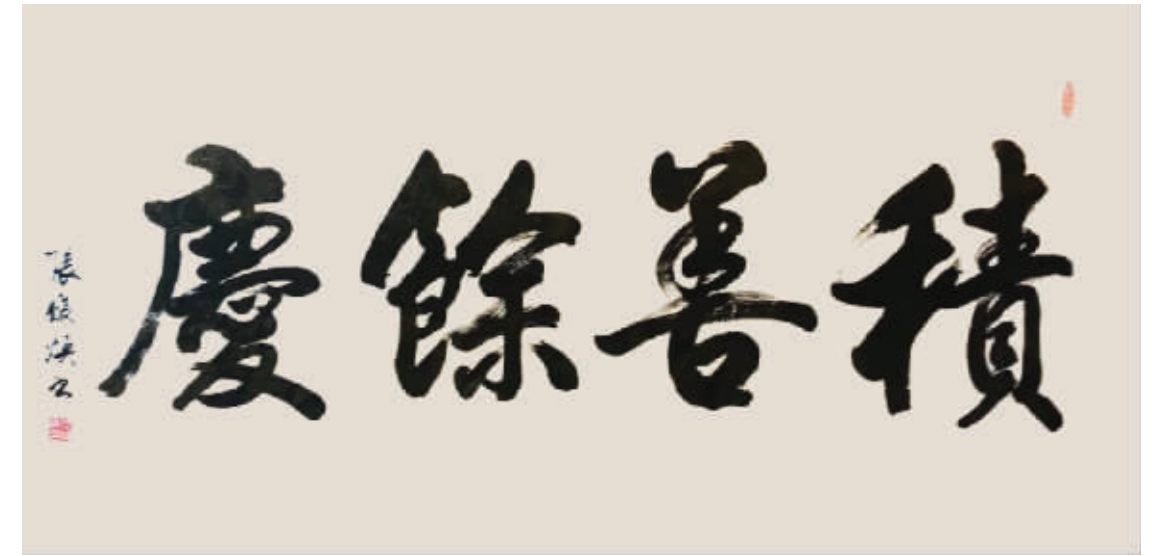 積善餘慶